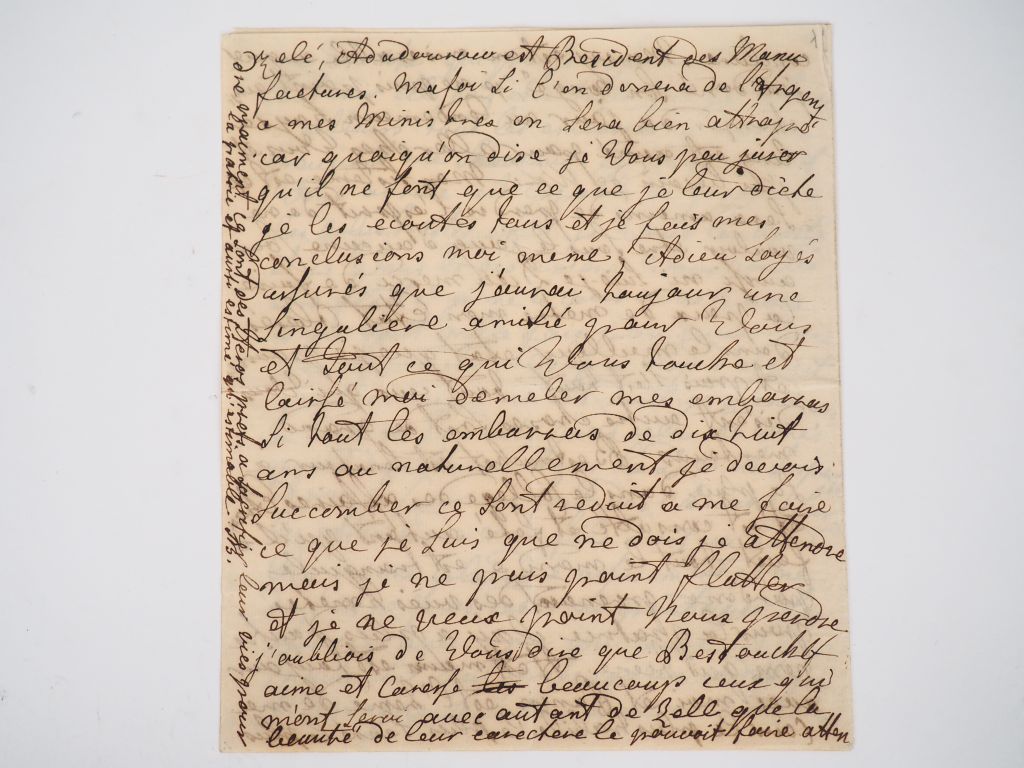 Zelé, Adadourow est President des Manu
factures. Mafoi Si l'on donnera de l'Argent
a mes Ministres on Sera bien attrapé
car quoiqu'on dise je Vous peu jurer
qu'il ne font que ce que je leur dicte
je les ecoutes tous et je fais mes
conclusions moi meme, Adieu Soyés
assurés que j'aurai toujour une
Singuliere amitié pour Vous
et tout ce qui Vous touche et
laissé moi demeler mes embarras
Si tout les embarras de dix huit
ans ou naturellement je devois
Succomber ce Sont reduit a me faire
ce que je Suis que ne dois je attendre
mais je ne puis point flatter
et je ne veux point Nous perdre
j'oubliois de Vous dire que Bestouchef
aime et Caresse beaucoup ceux qui
m'ont Servi avec autant de Zelle que la
beauté de leur carectere le pouvoit faire atten
dre vraiment Ca Sont des Heros prets a Sacrifier leur vies pour
la patrie et aussi estimé qu'estimable. NB.